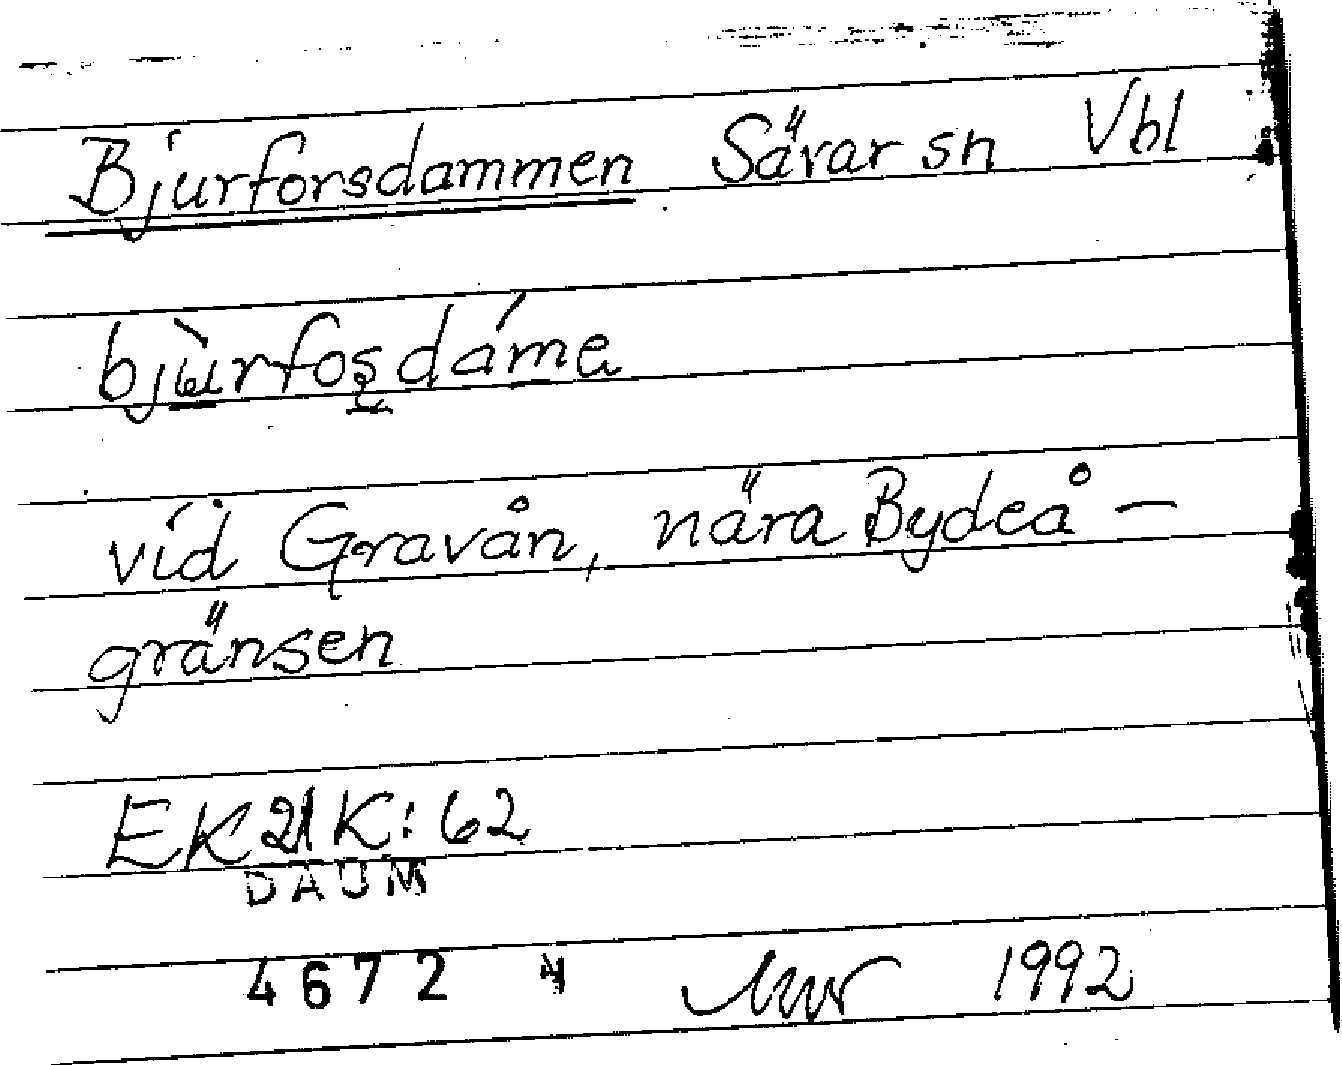 Bjurforsdammen Sävar sn Vbl
bjùrfoşdáme
vid Gravån, nära Bydeå-
gränsen
EK 21 K: 62
DAUM
4672
1992